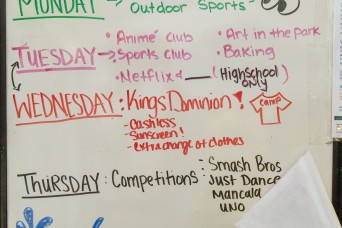 MONDAY → Outdoor Sports
TUESDAY → • Animé club • Art in the Park
• Sports Club • Baking
• Netflix & ___ (Highschool ONLY)
WEDNESDAY: Kings Dominion!
- Cashless
- Sunscreen!
- extra change of clothes
CAMP
THURSDAY: Competitions: - Smash Bros
Just Dance
Mancala
UNO